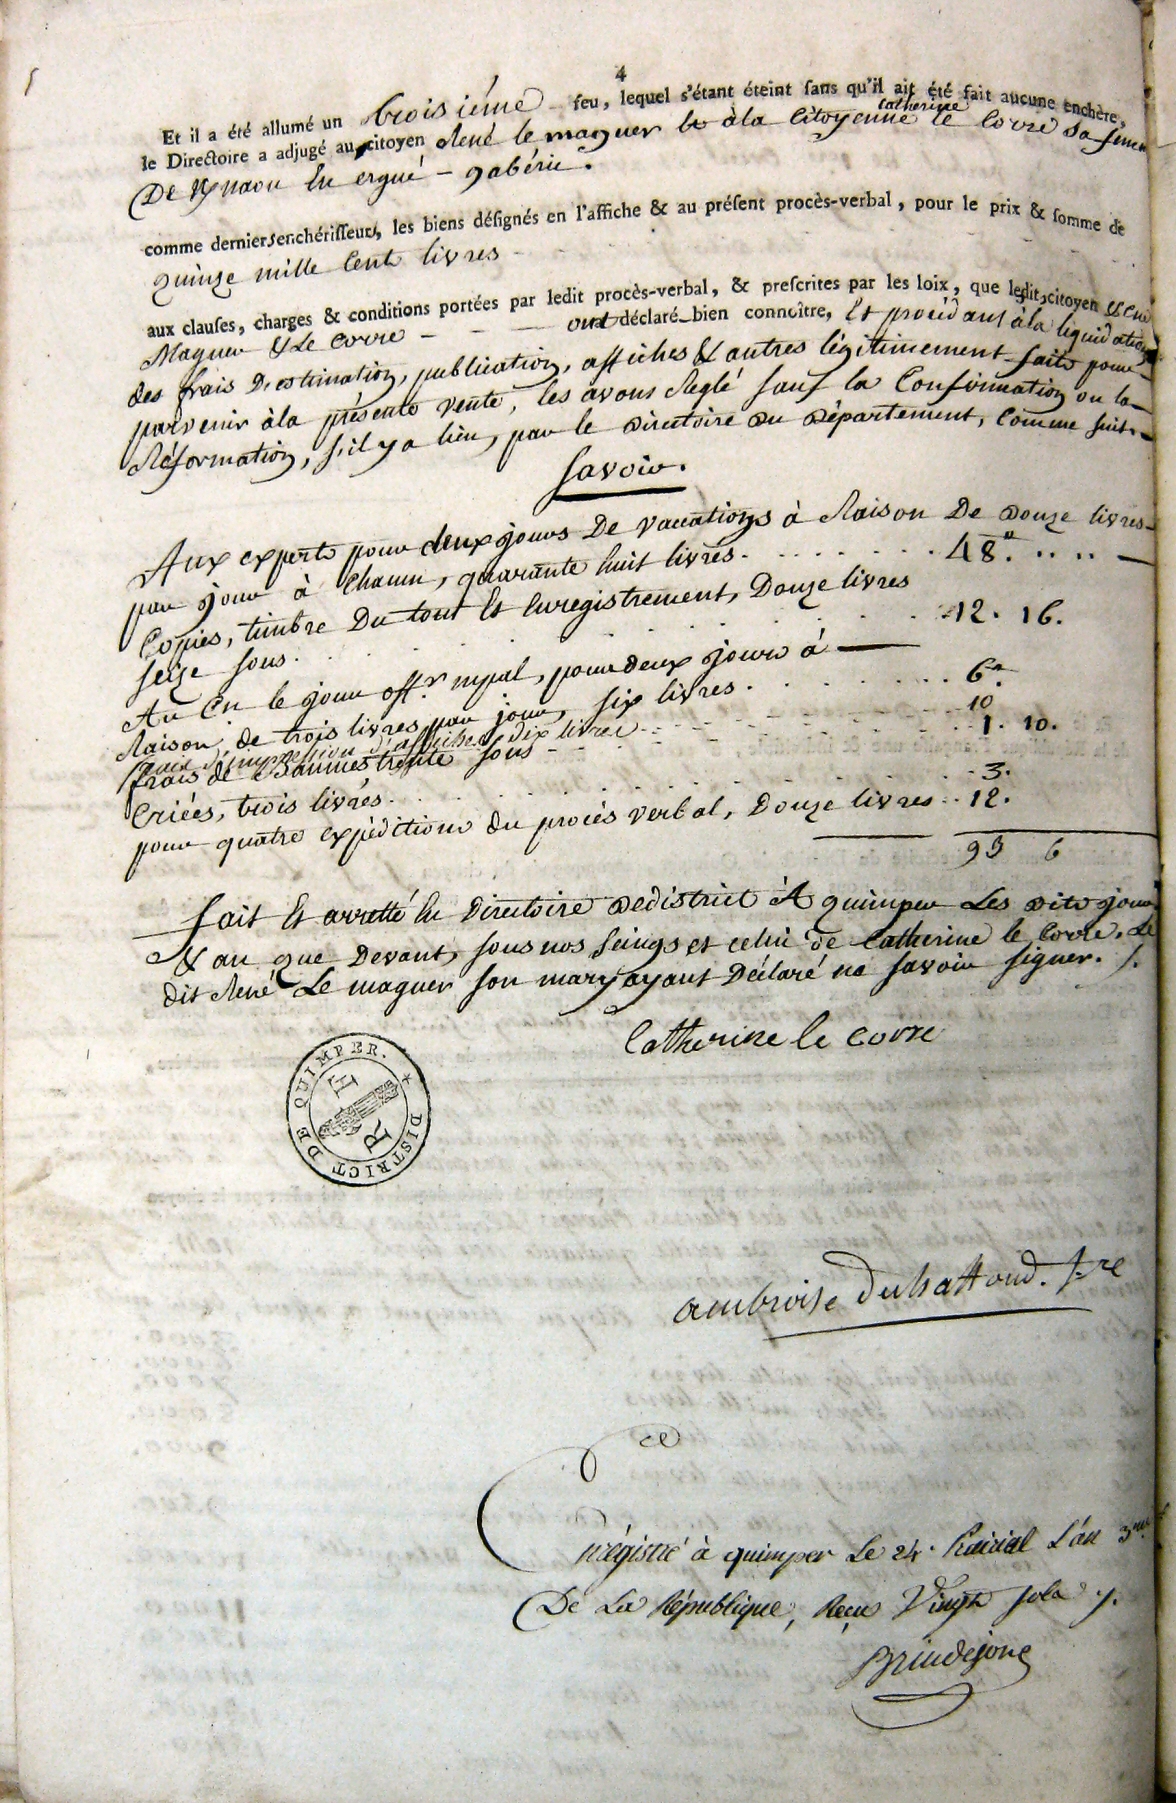 4
Et il a été allumé un troisiéme feu, lequel s'étant éteint sans qu'il ait été fait aucune enchère,
le Directoire a adjugé au citoyen René le maguer Et à la Citoyenne catherine le Corre sa femme
De Kynaou En ergué-gabéric.
comme derniers enchérisseurs, les biens désignés en l'affiche & au présent procès-verbal, pour le prix & somme de
quinze mille Cent livres
aux clauses, charges & conditions portées par ledit procès-verbal, & prescrites par les loix, que lesdits citoyen René
Maguer & Le Corre ont déclaré bien connoître, Et procédant à la liquidation
des frais D'estimation, publication, affiches & autres légitimement faits pour
parvenir à la présente vente, les avons Reglé sauf la Confirmation ou la
Réformation, s'il y a lieu, par le Directoire du Département, Comme suit.
Savoir.
Aux experts pour deux jours De vacations à Raison De Douze livres
par jour à Chacun, quarante huit livres. 48.
Copies, timbre Du tout Et Enregistrement, Douze livres
seize sous. 12. 16.
Au Cn le jour offr mpal, pour deux jours à
Raison de trois livres par jour, six livres. 6
pour impression d'affiches, dix livres 10
frais de Bannies trente sous 1. 10.
Criées, trois livres. 3.
pour quatre expéditions du procès verbal, Douze livres 12.
93 6
fait Et arretté En Directoire de District à quimper Les Dits jour
& an que Devant, sous nos seings et celui de Catherine le Corre. Le
dit René Le maguer son mary ayant Déclaré ne savoir signer.
Catherine le corre
DISTRICT DE QUIMPER.
R F
ambroise Duhaffond. Sre
Enrégistré à quimper Le 24. Prairial L'an 3me
De La République, Reçu Vingt sols
Brindejonc